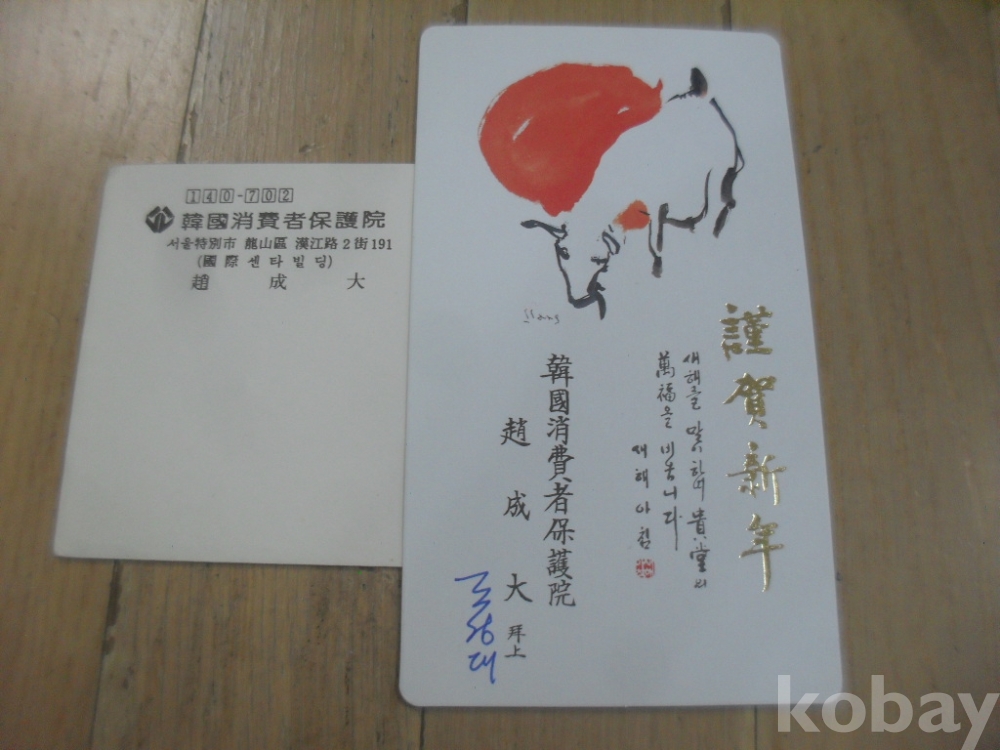 140-702
韓國消費者保護院
서울特別市 龍山區 漢江路 2街 191
(國際센타빌딩)
趙 成 大
謹賀新年
새해를 맞이하여 貴堂의
萬福을 비옵니다
새해아침
韓國消費者保護院
趙 成 大 拜上
조성대
kobay